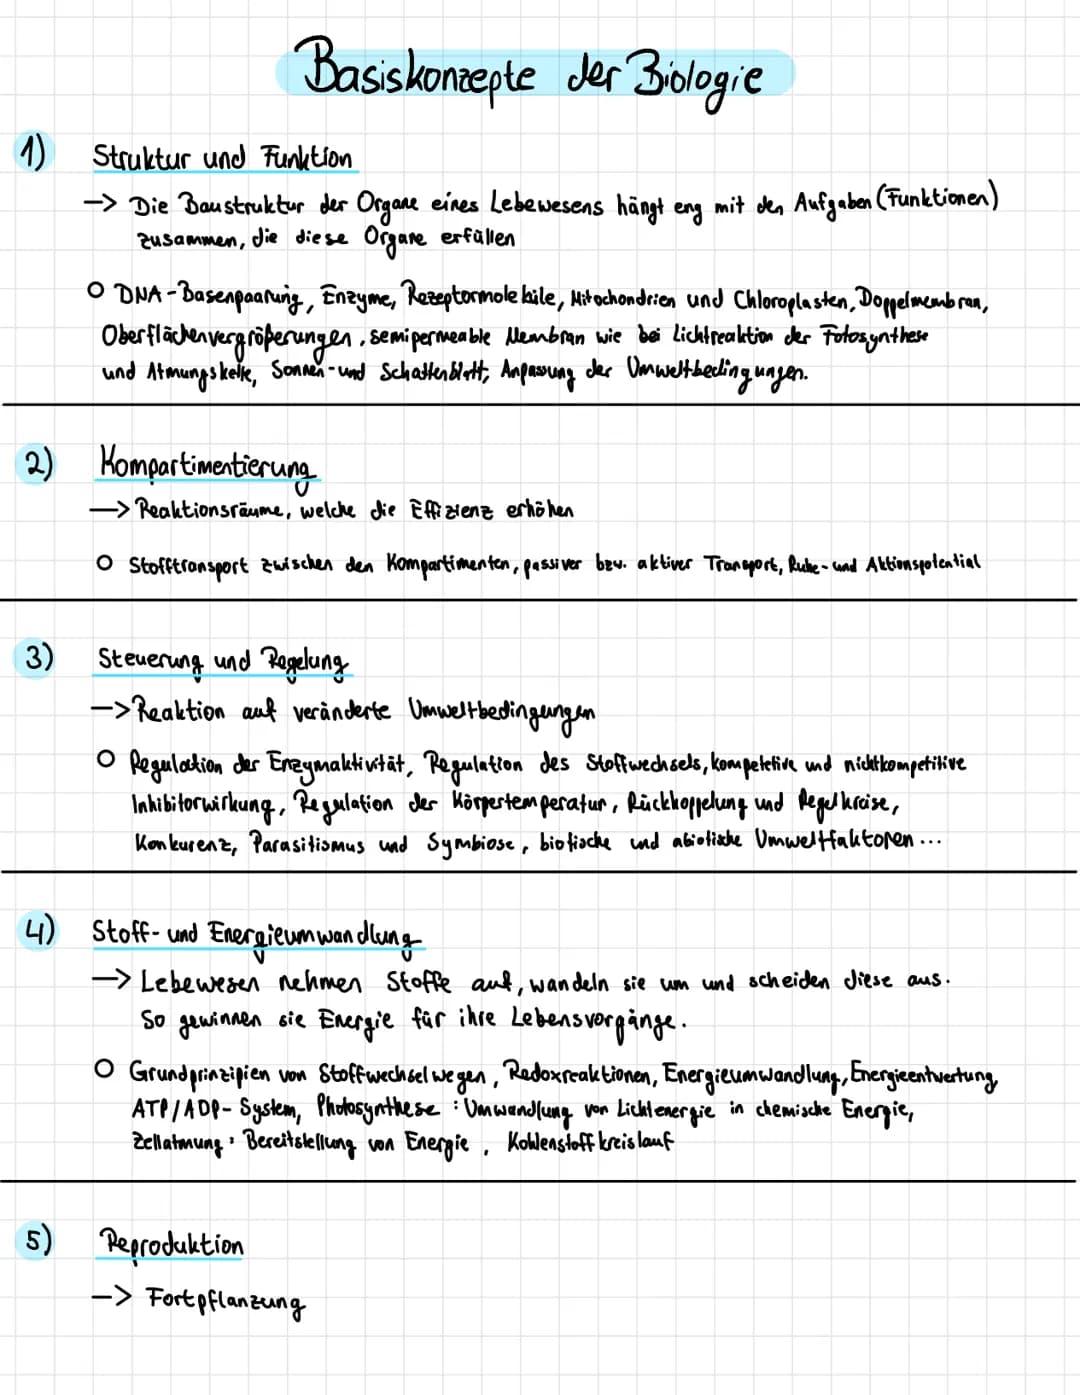 Basiskonzepte der Biologie
1) Struktur und Funktion
-> Die Baustruktur der Organe eines Lebewesens hängt eng mit den Aufgaben (Funktionen)
zusammen, die diese Organe erfüllen
O DNA-Basenpaarung, Enzyme, Rezeptormoleküle, Mitochondrien und Chloroplasten, Doppelmembran,
Oberflächenvergrößerungen, semipermeable Membran wie bei Lichtreaktion der Fotosynthese
und Atmungskette, Sonnen- und Schattenblatt, Anpassung der Umweltbedingungen.
2) Kompartimentierung
-> Reaktionsräume, welche die Effizienz erhöhen
O Stofftransport zwischen den Kompartimenten, passiver bzw. aktiver Transport, Ruhe- und Aktionspotential
3) Steuerung und Regelung
-> Reaktion auf veränderte Umweltbedingungen
O Regulation der Enzymaktivität, Regulation des Stoffwechsels, kompetetive und nichtkompetitive
Inhibitorwirkung, Regulation der Körpertemperatur, Rückkoppelung und Regelkreise,
Konkurenz, Parasitismus und Symbiose, biotische und abiotische Umweltfaktoren...
4) Stoff- und Energieumwandlung
-> Lebewesen nehmen Stoffe auf, wandeln sie um und scheiden diese aus.
So gewinnen sie Energie für ihre Lebensvorgänge.
O Grundprinzipien von Stoffwechselwegen, Redoxreaktionen, Energieumwandlung, Energieentwertung,
ATP/ADP-System, Photosynthese: Umwandlung von Lichtenergie in chemische Energie,
Zellatmung: Bereitstellung von Energie, Kohlenstoffkreislauf
5) Reproduktion
-> Fortpflanzung